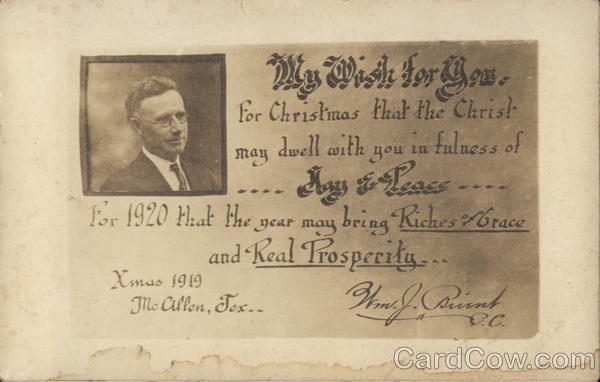 My Wish for You.
For Christmas that the Christ
may dwell with you in fulness of
.... Joy & Peace ....
For 1920 that the year may bring Riches of Grace
and Real Prosperity...
Xmas 1919
Mc Allen, Tex..
Wm. J. Burnt
CardCow.com